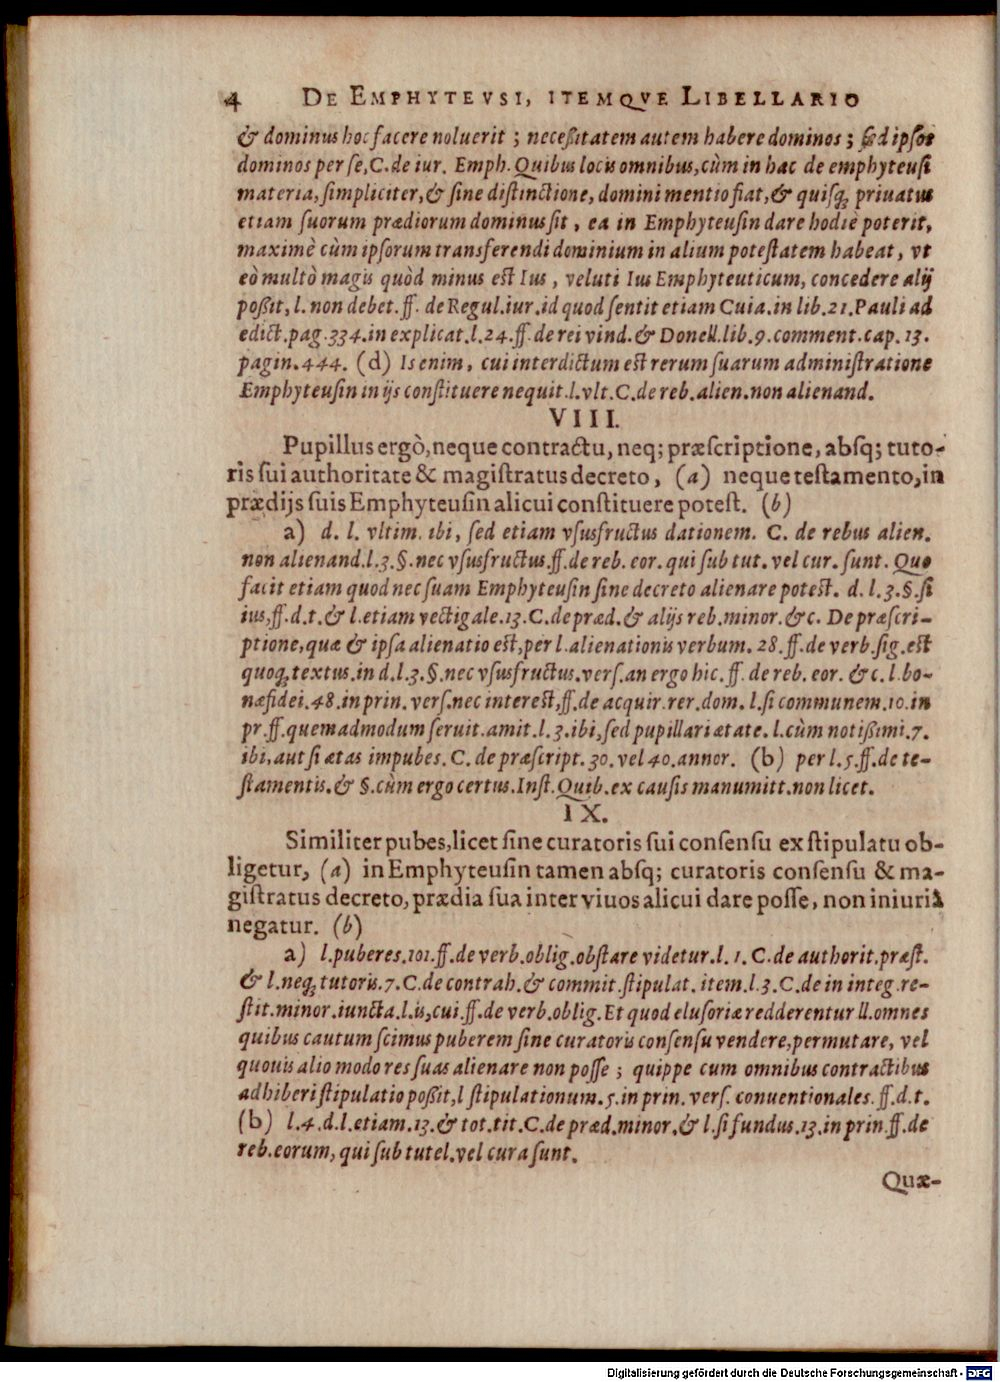 4 DE EMPHYTEVSI, ITEMQVE LIBELLARIO
& dominus hoc facere noluerit ; neceßitatem autem habere dominos ; sed ipsos
dominos per se, C. de iur. Emph. Quibus locis omnibus, cùm in hac de emphyteusi
materia, simpliciter, & sine distinctione, domini mentio fiat, & quisq; priuatus
etiam suorum prædiorum dominus sit , ea in Emphyteusin dare hodiè poterit,
maximè cùm ipsorum transferendi dominium in alium potestatem habeat , vt
eò multò magis quòd minus est Ius , veluti Ius Emphyteuticum, concedere alij
poßit, l. non debet. ff. de Regul. iur. id quod sentit etiam Cuia. in lib. 21. Pauli ad
edict. pag. 334. in explicat. l. 24. ff. de rei vind. & Donell. lib. 9. comment. cap. 13.
pagin. 444. (d) Is enim , cui interdictum est rerum suarum administratione
Emphyteusin in ijs constituere nequit. l. vlt. C. de reb. alien. non alienand.
VIII.
Pupillus ergò, neque contractu, neq; præscriptione, absq; tuto-
ris sui authoritate & magistratus decreto, (a) neque testamento, in
prædijs suis Emphyteusin alicui constituere potest. (b)
a) d. l. vltim. ibi, sed etiam vsusfructus dationem. C. de rebus alien.
non alienand. l. 3. §. nec vsusfructus. ff. de reb. eor. qui sub tut. vel cur. sunt. Quo
facit etiam quod nec suam Emphyteusin sine decreto alienare potest. d. l. 3. §. si
ius, ff. d. t. & l. etiam vectigale. 13. C. de præd. & alijs reb. minor. &c. De præscri-
ptione, quæ & ipsa alienatio est, per l. alienationis verbum. 28. ff. de verb. sig. est
quoq; textus. in d. l. 3. §. nec vsusfructus. vers. an ergo hic. ff. de reb. eor. &c. l. bo-
næ fidei. 48. in prin. vers. nec interest, ff. de acquir. rer. dom. l. si communem. 10. in
pr. ff. quemadmodum seruit. amit. l. 3. ibi, sed pupillari ætate. l. cùm notißimi. 7.
ibi, aut si ætas impubes. C. de præscript. 30. vel 40. annor. (b) per l. 5. ff. de te-
stamentis. & §. cùm ergo certus. Inst. Quib. ex causis manumitt. non licet.
IX.
Similiter pubes, licet sine curatoris sui consensu ex stipulatu ob-
ligetur, (a) in Emphyteusin tamen absq; curatoris consensu & ma-
gistratus decreto, prædia sua inter viuos alicui dare posse, non iniuriâ
negatur. (b)
a) l. puberes. 101. ff. de verb. oblig. obstare videtur. l. 1. C. de authorit. præst.
& l. neq; tutoris. 7. C. de contrah. & commit. stipulat. item. l. 3. C. de in integ. re-
stit. minor. iuncta. l. is, cui. ff. de verb. oblig. Et quod elusoriæ redderentur ll. omnes
quibus cautum scimus puberem sine curatoris consensu vendere, permutare, vel
quouis alio modo res suas alienare non posse ; quippe cum omnibus contractibus
adhiberi stipulatio poßit, l stipulationum. 5. in prin. vers. conuentionales. ff. d. t.
(b) l. 4. d. l. etiam. 13. & tot. tit. C. de præd. minor. & l. si fundus. 13. in prin. ff. de
reb. eorum, qui sub tutel. vel cura sunt.
Quæ-
Digitalisierung gefördert durch die Deutsche Forschungsgemeinschaft - DFG